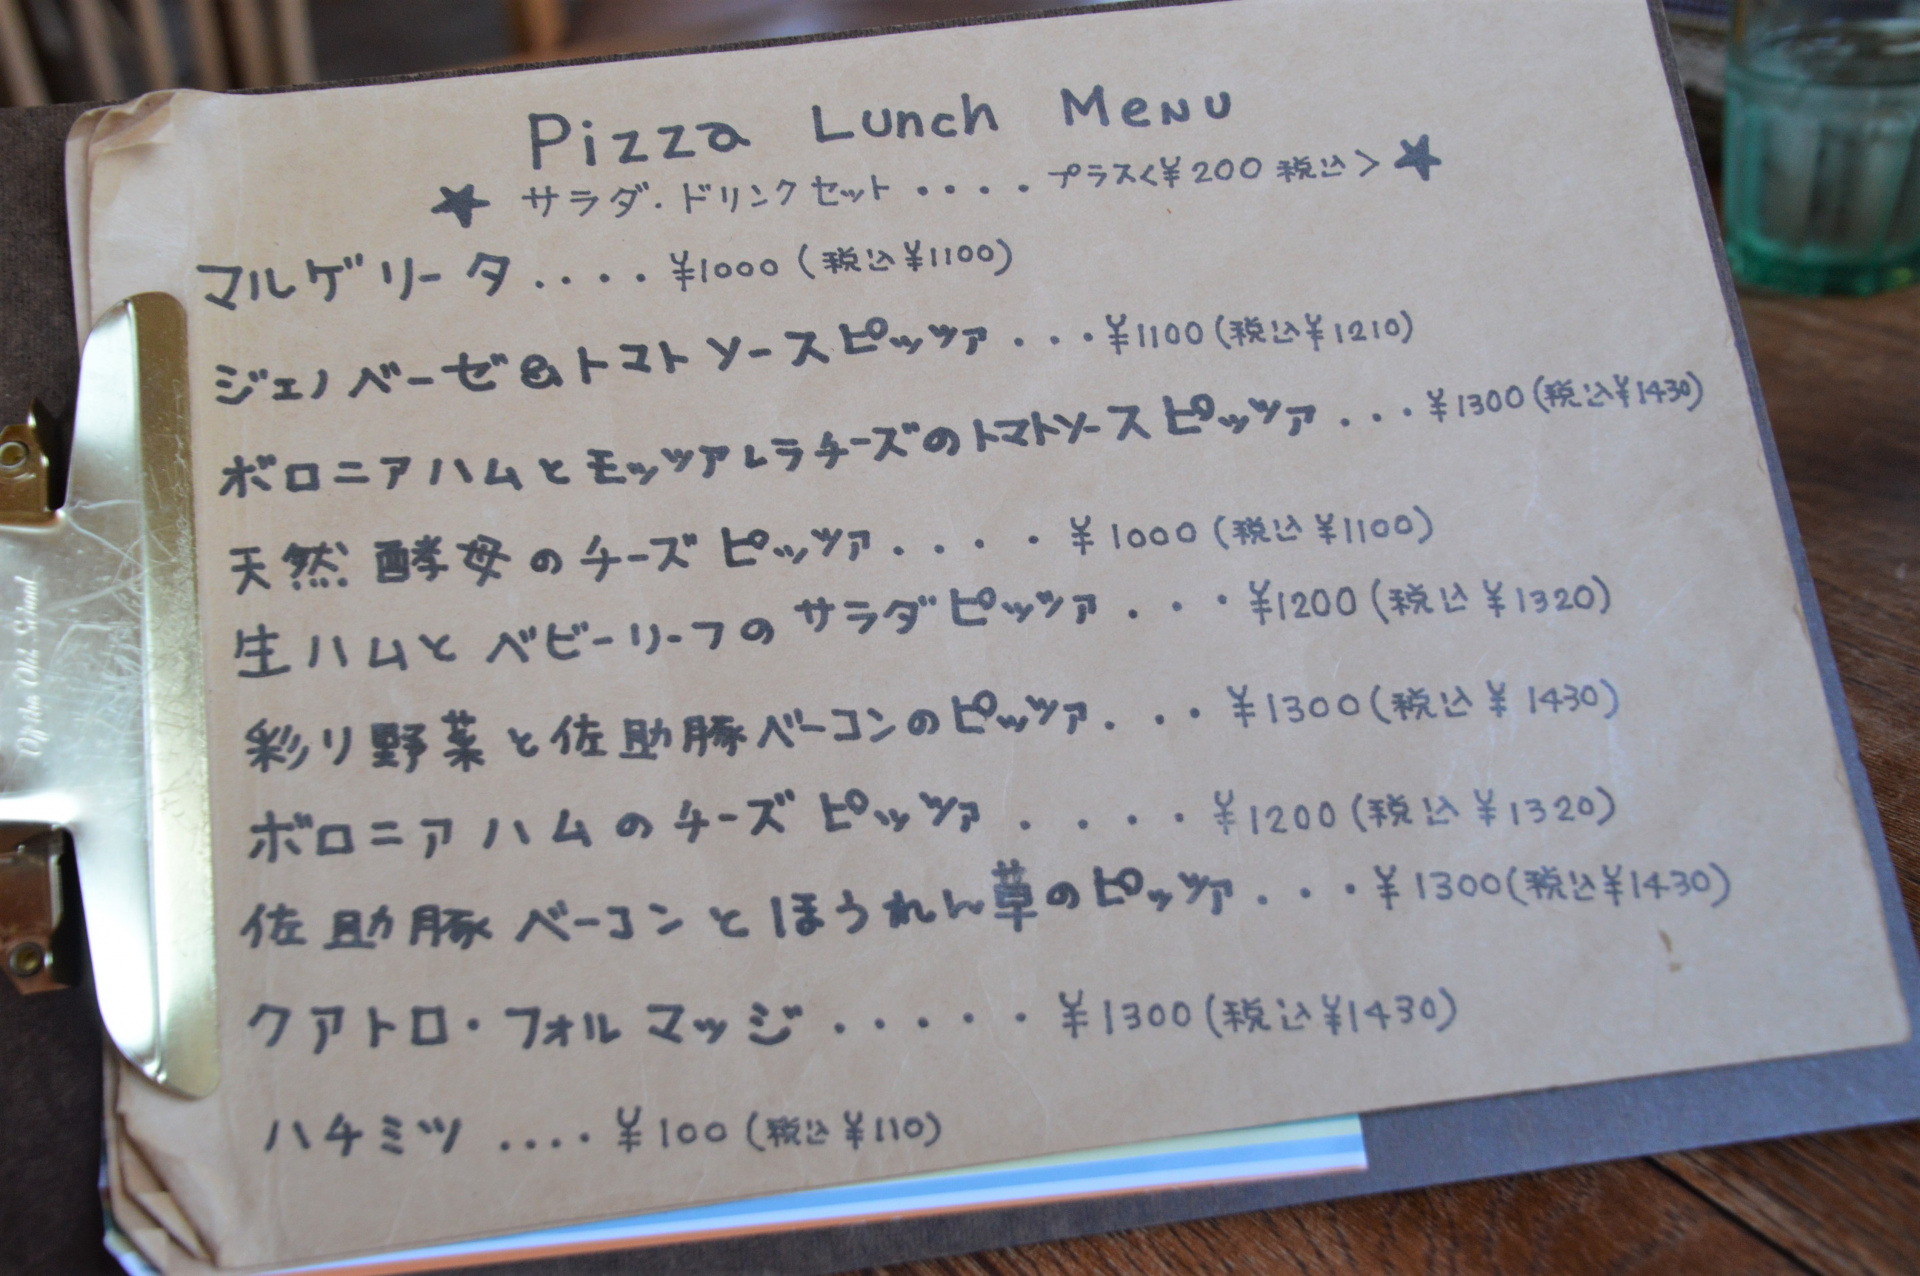 Pizza Lunch Menu
★ サラダ・ドリンクセット ‥‥ プラス<¥200 税込> ★
マルゲリータ ‥‥ ¥1000 (税込¥1100)
ジェノベーゼ&トマトソースピッツァ ‥・¥1100(税込¥1210)
ボロニアハムとモッツアレラチーズのトマトソースピッツァ ‥・¥1300(税込¥1430)
天然酵母のチーズピッツァ ‥‥ ¥1000 (税込¥1100)
生ハムとベビーリーフのサラダピッツァ ‥・¥1200 (税込¥1320)
彩り野菜と佐助豚ベーコンのピッツァ ‥・¥1300(税込¥1430)
ボロニアハムのチーズピッツァ ‥‥・¥1200 (税込¥1320)
佐助豚ベーコンとほうれん草のピッツァ ‥・¥1300(税込¥1430)
クアトロ・フォルマッジ ‥‥・¥1300(税込¥1430)
ハチミツ ‥‥ ¥100 (税込¥110)